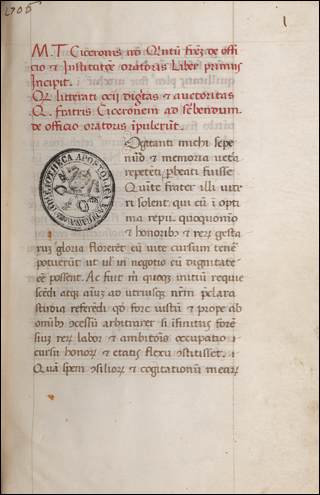 1706
1
M. T. Ciceronis ad Q̄ntū frēȝ de offi
cio ⁊ Institutōe oratoris Liber primus
Incipit.
Qr̄ litterati ocij dig̅tas ⁊ auctoritas
Q. fratris Ciceronem ad scribendum
de officio oratoris īpulerūt.
Ogitanti michi sepe
nuō ⁊ memoria veta
repetēti ꝑbeati fuisse
Quīte frater illi
ri solent. qui cū ī opti
ma repu. quoq̄ honō
⁊ honoribꝰ ⁊ reꝝ gesta
ruȝ gloria florerēt eū vite cursum tenē̄
potuerūt ut uꝉ in negotio cū dignitate
eē possent. Ac fuit m̄ quoqȝ initiū requie
scēdi atqȝ aīuȝ ad utriusqȝ nr̄m p̄clara
studia referēdi q̄d fore iustū ⁊ prope ab
oīnibꝰ ꝯcessū arbitrarer si ifinitus forē
sium reꝝ labor ⁊ ambitōis occupatio ī
cursu honoꝝ ⁊ etatis flexu ꝯstitisset.
Quā spem ꝯsilioꝝ ⁊ cogitationū meaꝝ
BIBLIOTHECA APOSTOLICA VATICANA